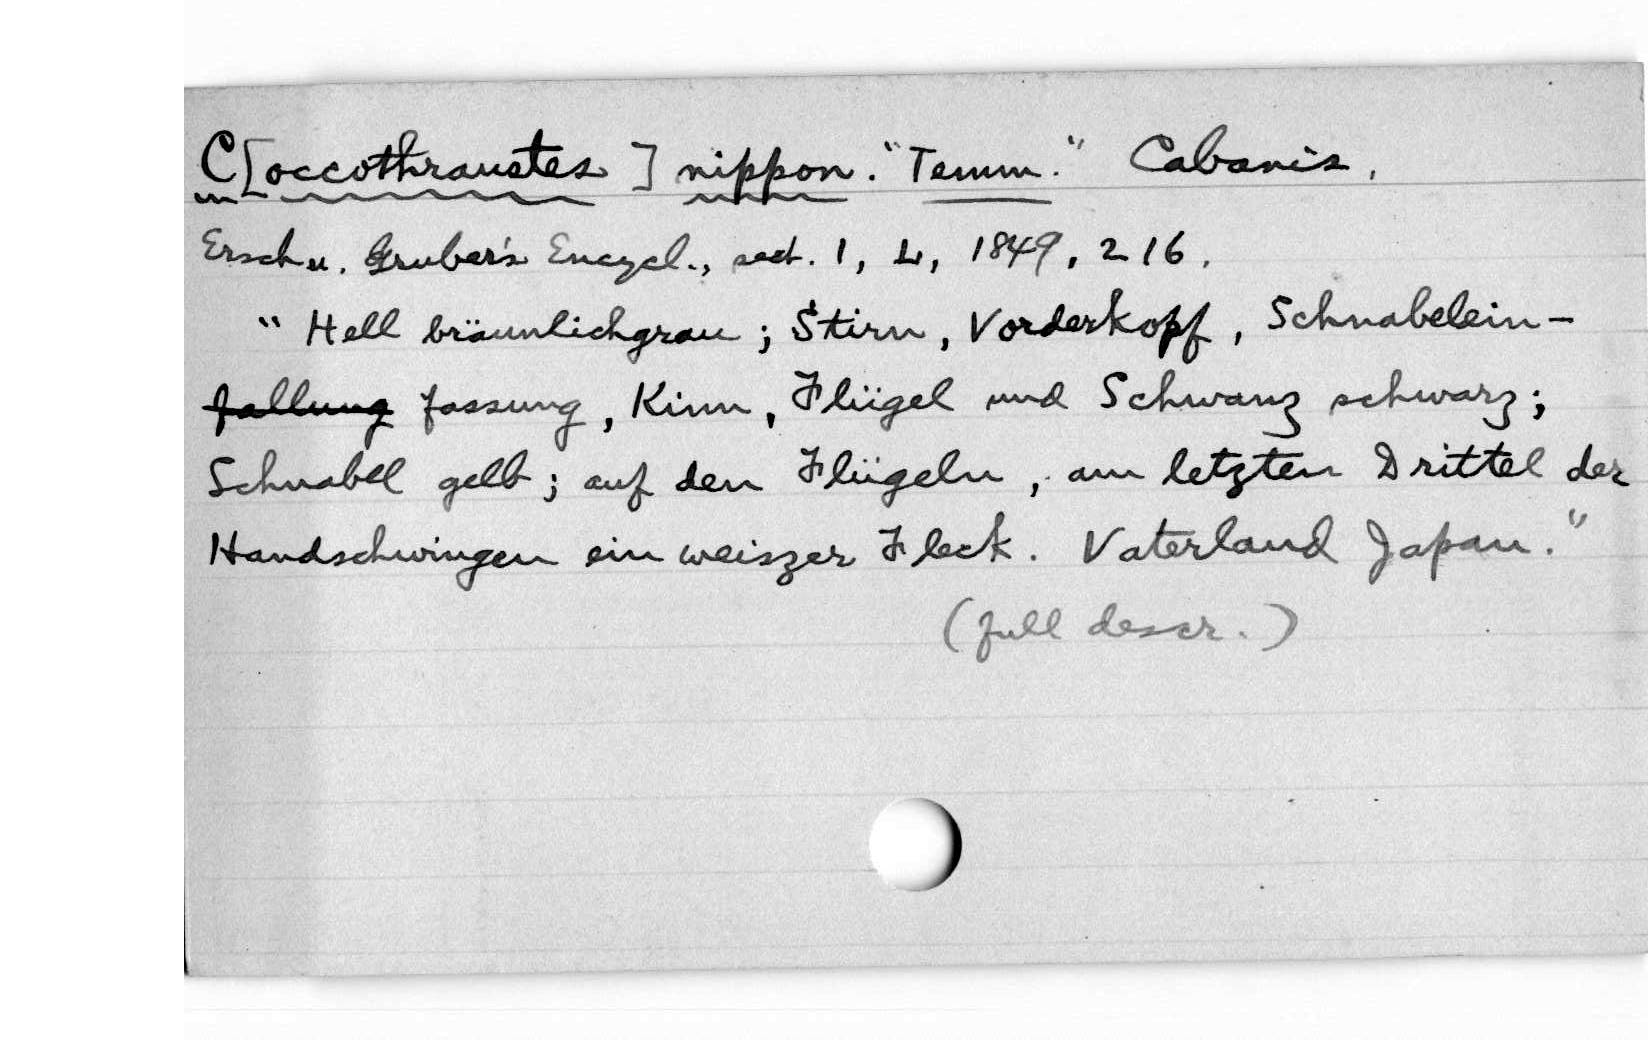 C[occothraustes] nippon. "Temm." Cabanis.
Ersch u. Gruber's Encycl., sect. 1, L, 1849, 216.
"Hell bräunlichgrau; Stirn, Vorderkopf, Schnabelein-
fallung fassung, Kinn, Flügel und Schwanz schwarz;
Schnabel gelb; auf den Flügeln, am letzten Drittel der
Handschwingen ein weiszer Fleck. Vaterland Japan."
(full descr.)